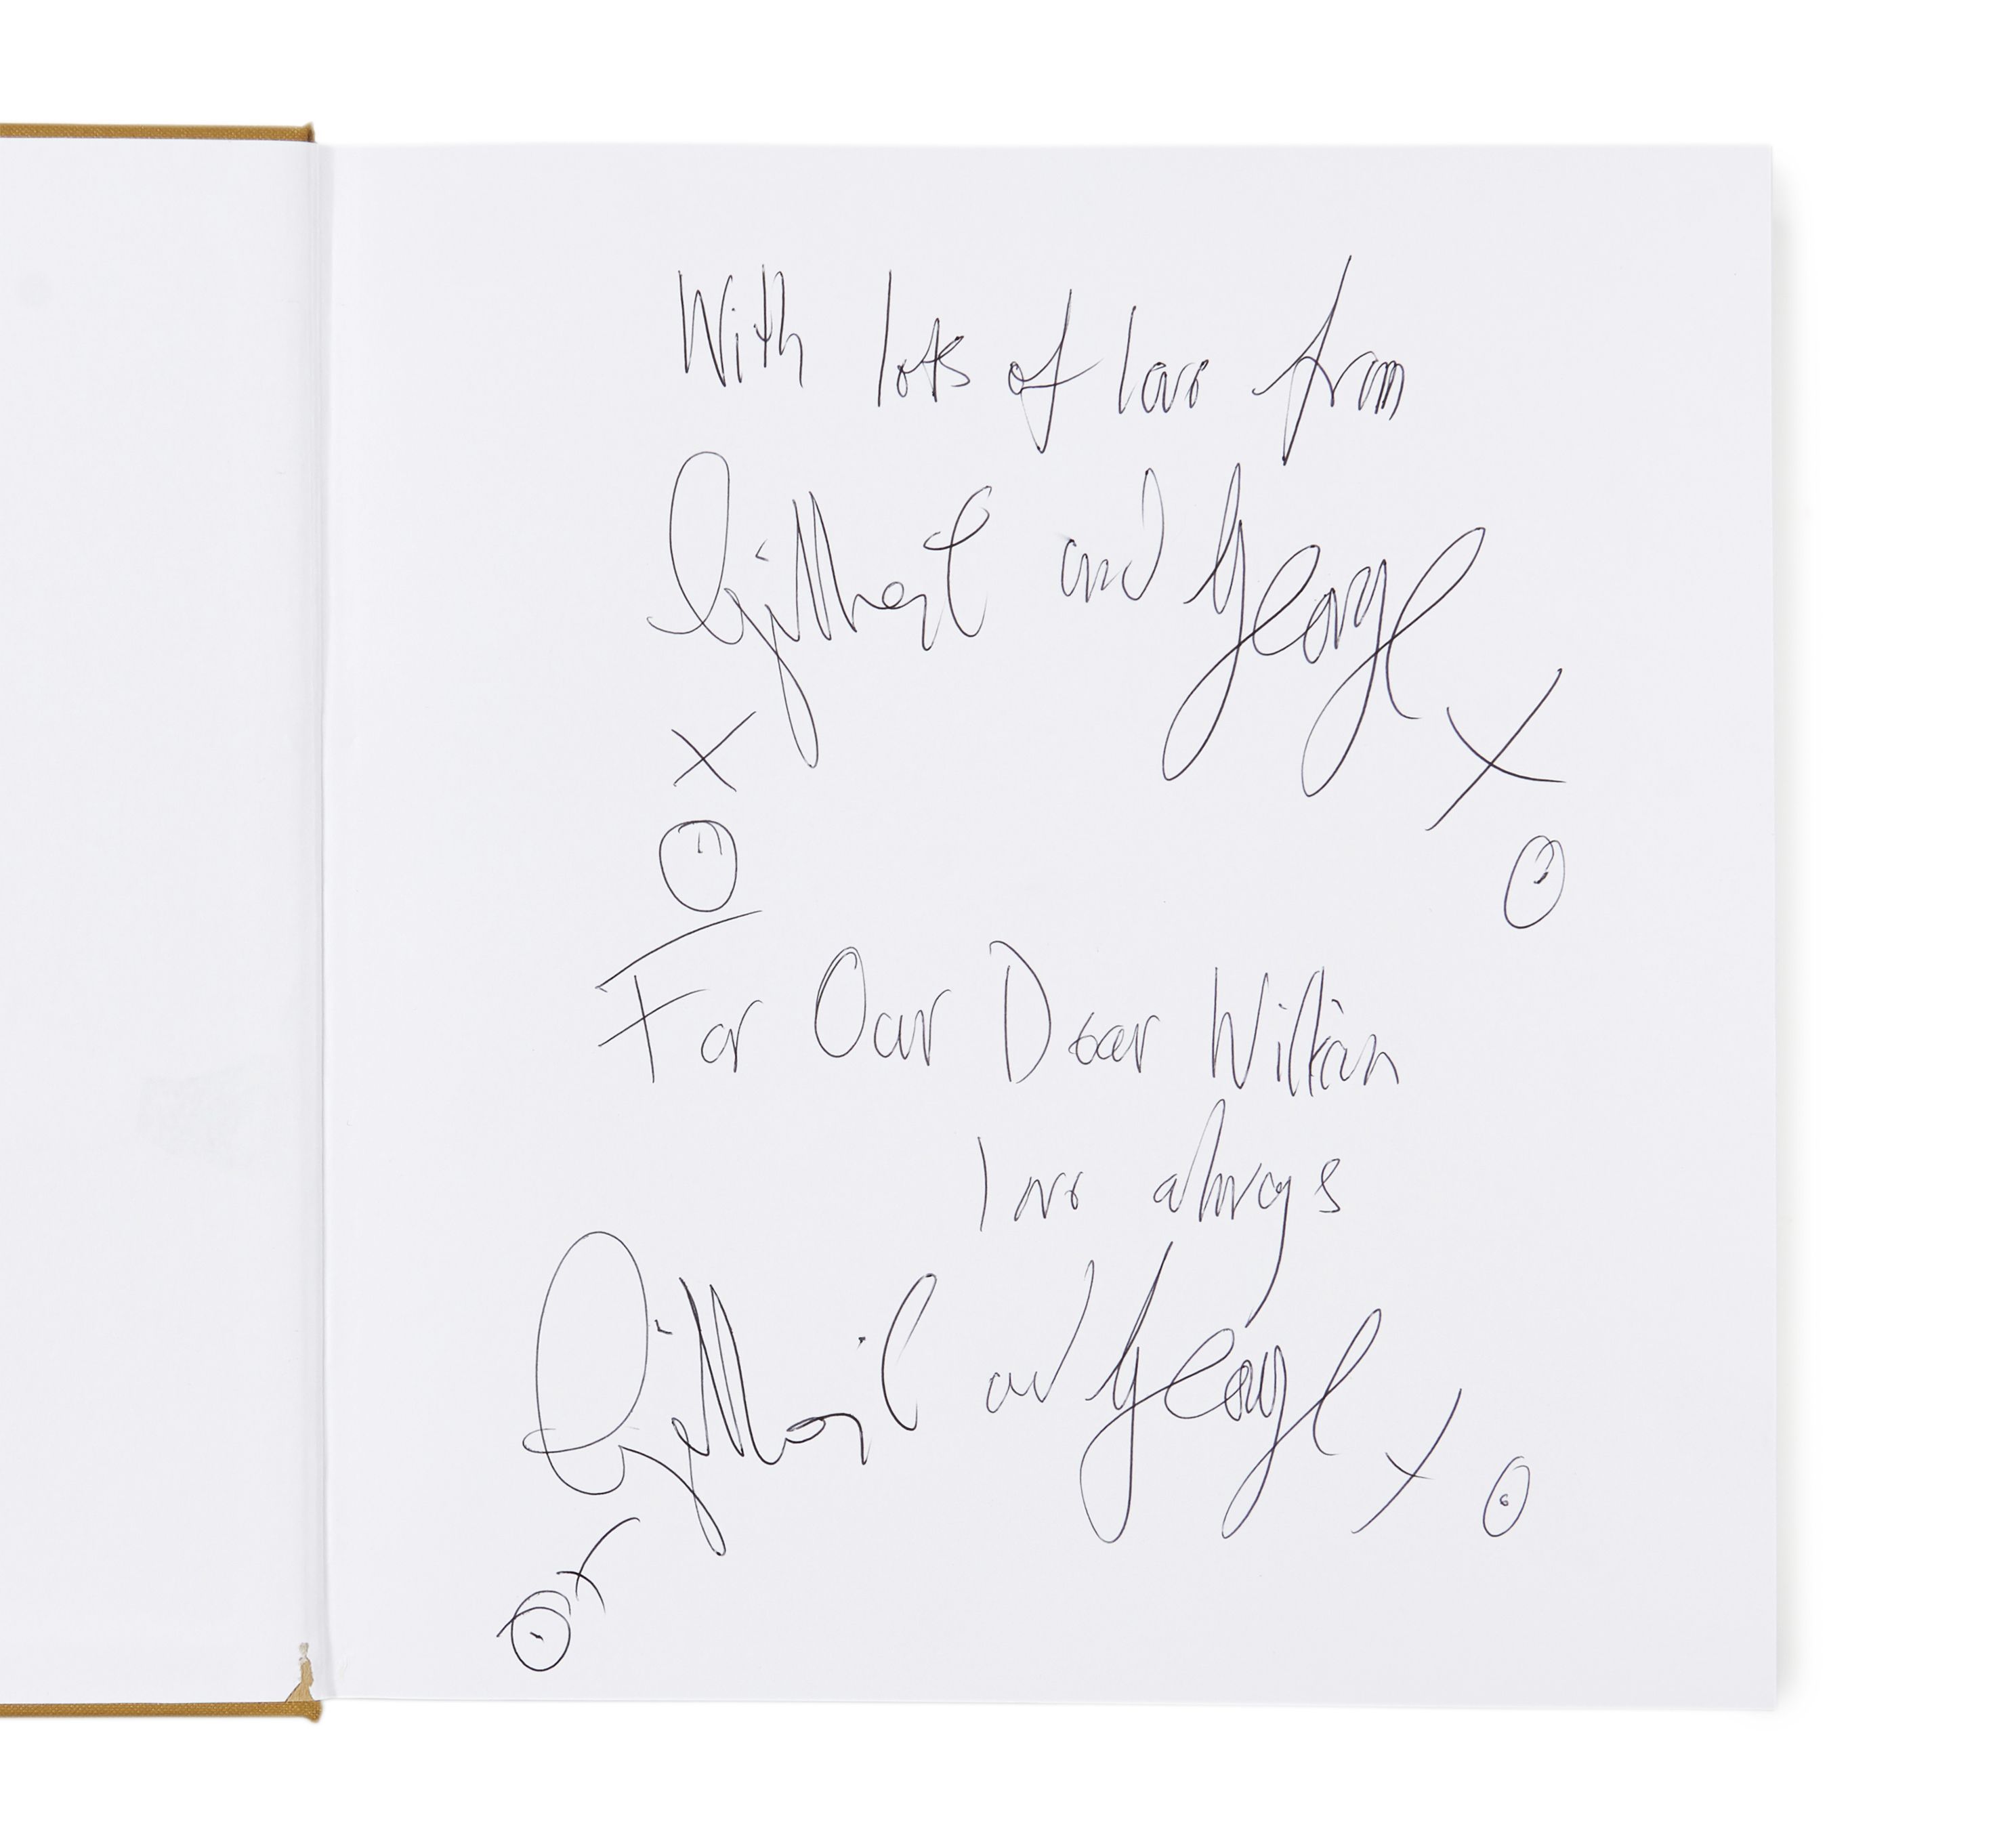 With lots of love from
Gilbert and George
X X
O O
For Our Dear William
love always
Gilbert and George X O
X
O